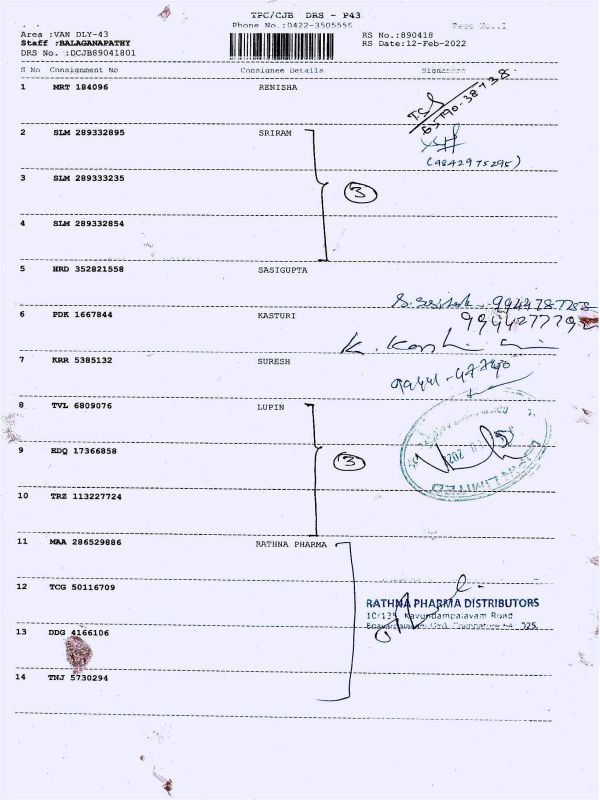 TPC/CJB DRS - P43
Phone No.:0422-3505555
Page No.:1
Area :VAN DLY-43
RS No.:890418
Staff :BALAGANAPATHY
RS Date:12-Feb-2022
DRS No. :DCJB89041801
S No Consignment No Consignee Details Signature
1 MRT 184096 RENISHA
2 SLM 289332895 SRIRAM
(9842975295)
3 SLM 289333235
3
4 SLM 289332854
5 HRD 352821558 SASIGUPTA
6 PDK 1667844 KASTURI
7 KRR 5385132 SURESH
8 TVL 6809076 LUPIN
9 EDQ 17366858
3
LIMITED
10 TRZ 113227724
11 MAA 286529886 RATHNA PHARMA
12 TCG 50116709
RATHNA PHARMA DISTRIBUTORS
Kavundampalayam Road
13 DDG 4166106
14 TNJ 5730294